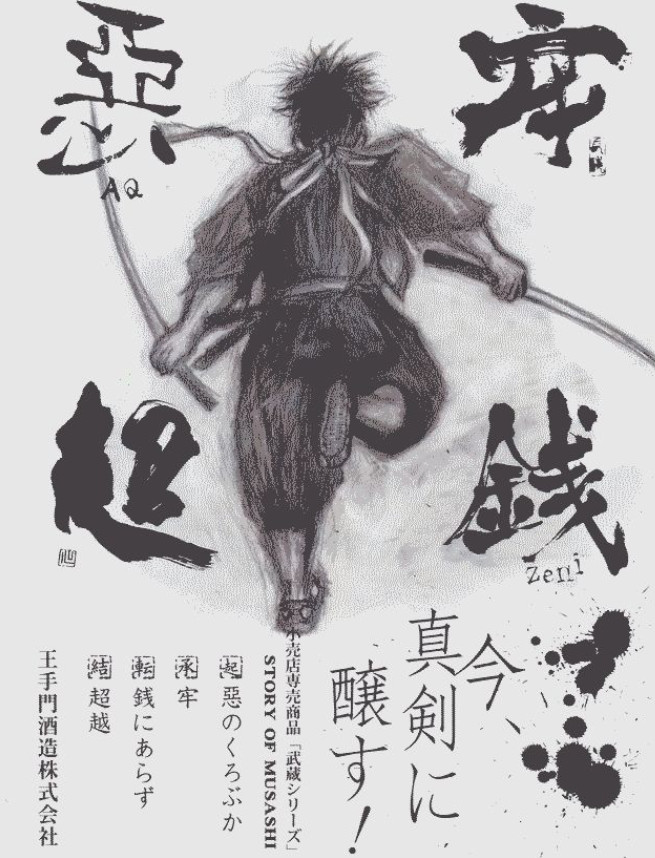 惡
AQ
牢
超
銭
Zeni
今、
真剣に
醸す!
小売店専売商品「武蔵シリーズ」
STORY OF MUSASHI
起 惡のくろぶか
承 牢
転 銭にあらず
結 超越
王手門酒造株式会社